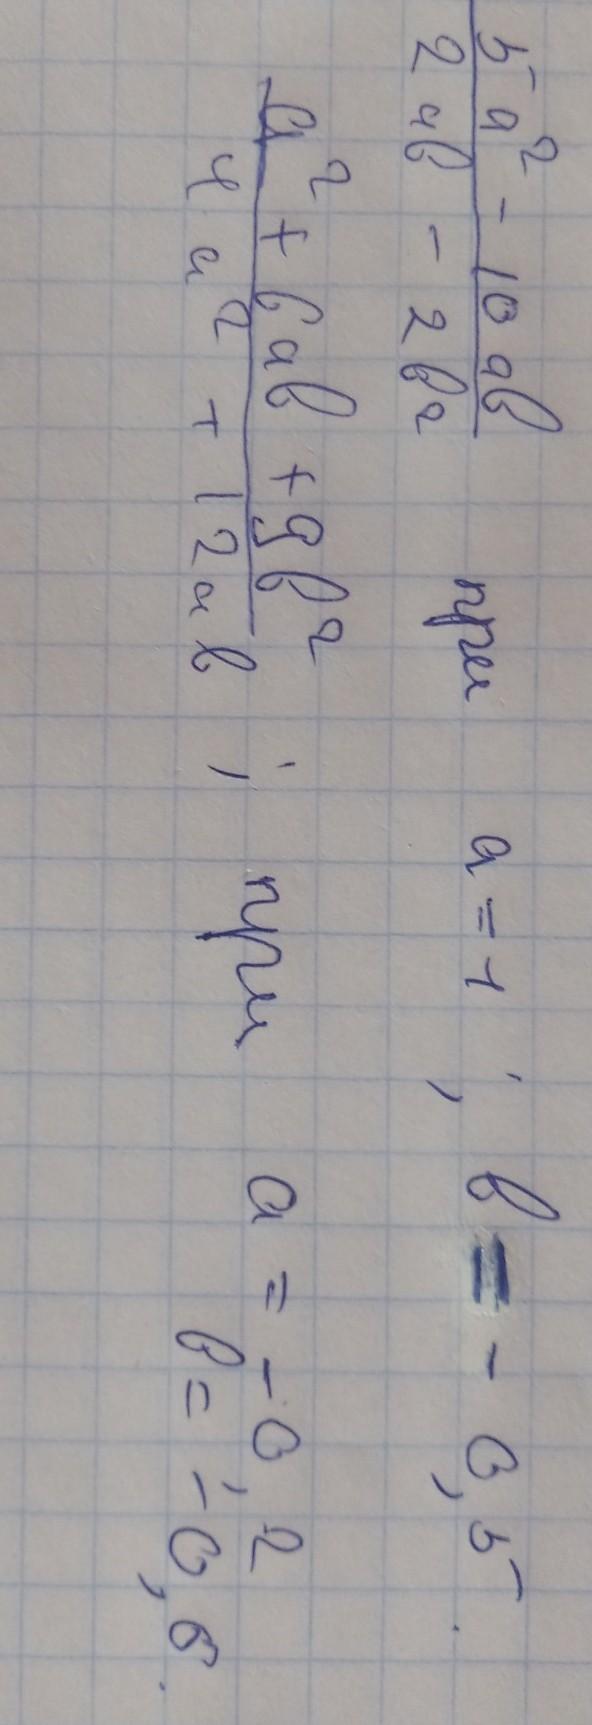 5a² - 10ab
2ab - 2b²
при a = 1; b = - 0,5.
a² + 6ab + 9b²
4a² + 12ab
; при a = -0,2
b = -0,6.